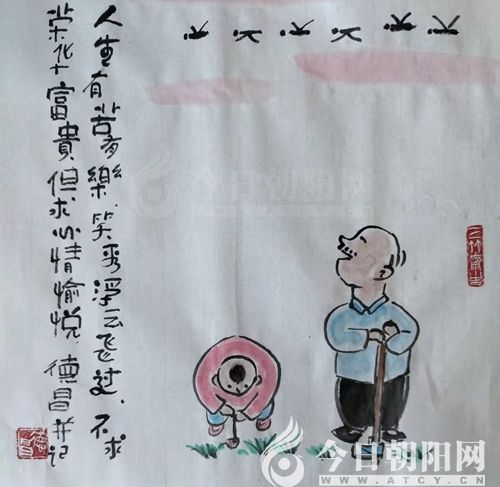 人生有苦有樂笑看浮云飞过、不求
荣华富貴但求心情愉悦、德昌并记
今日朝阳网
今日朝阳网
WWW.ATCY.CN